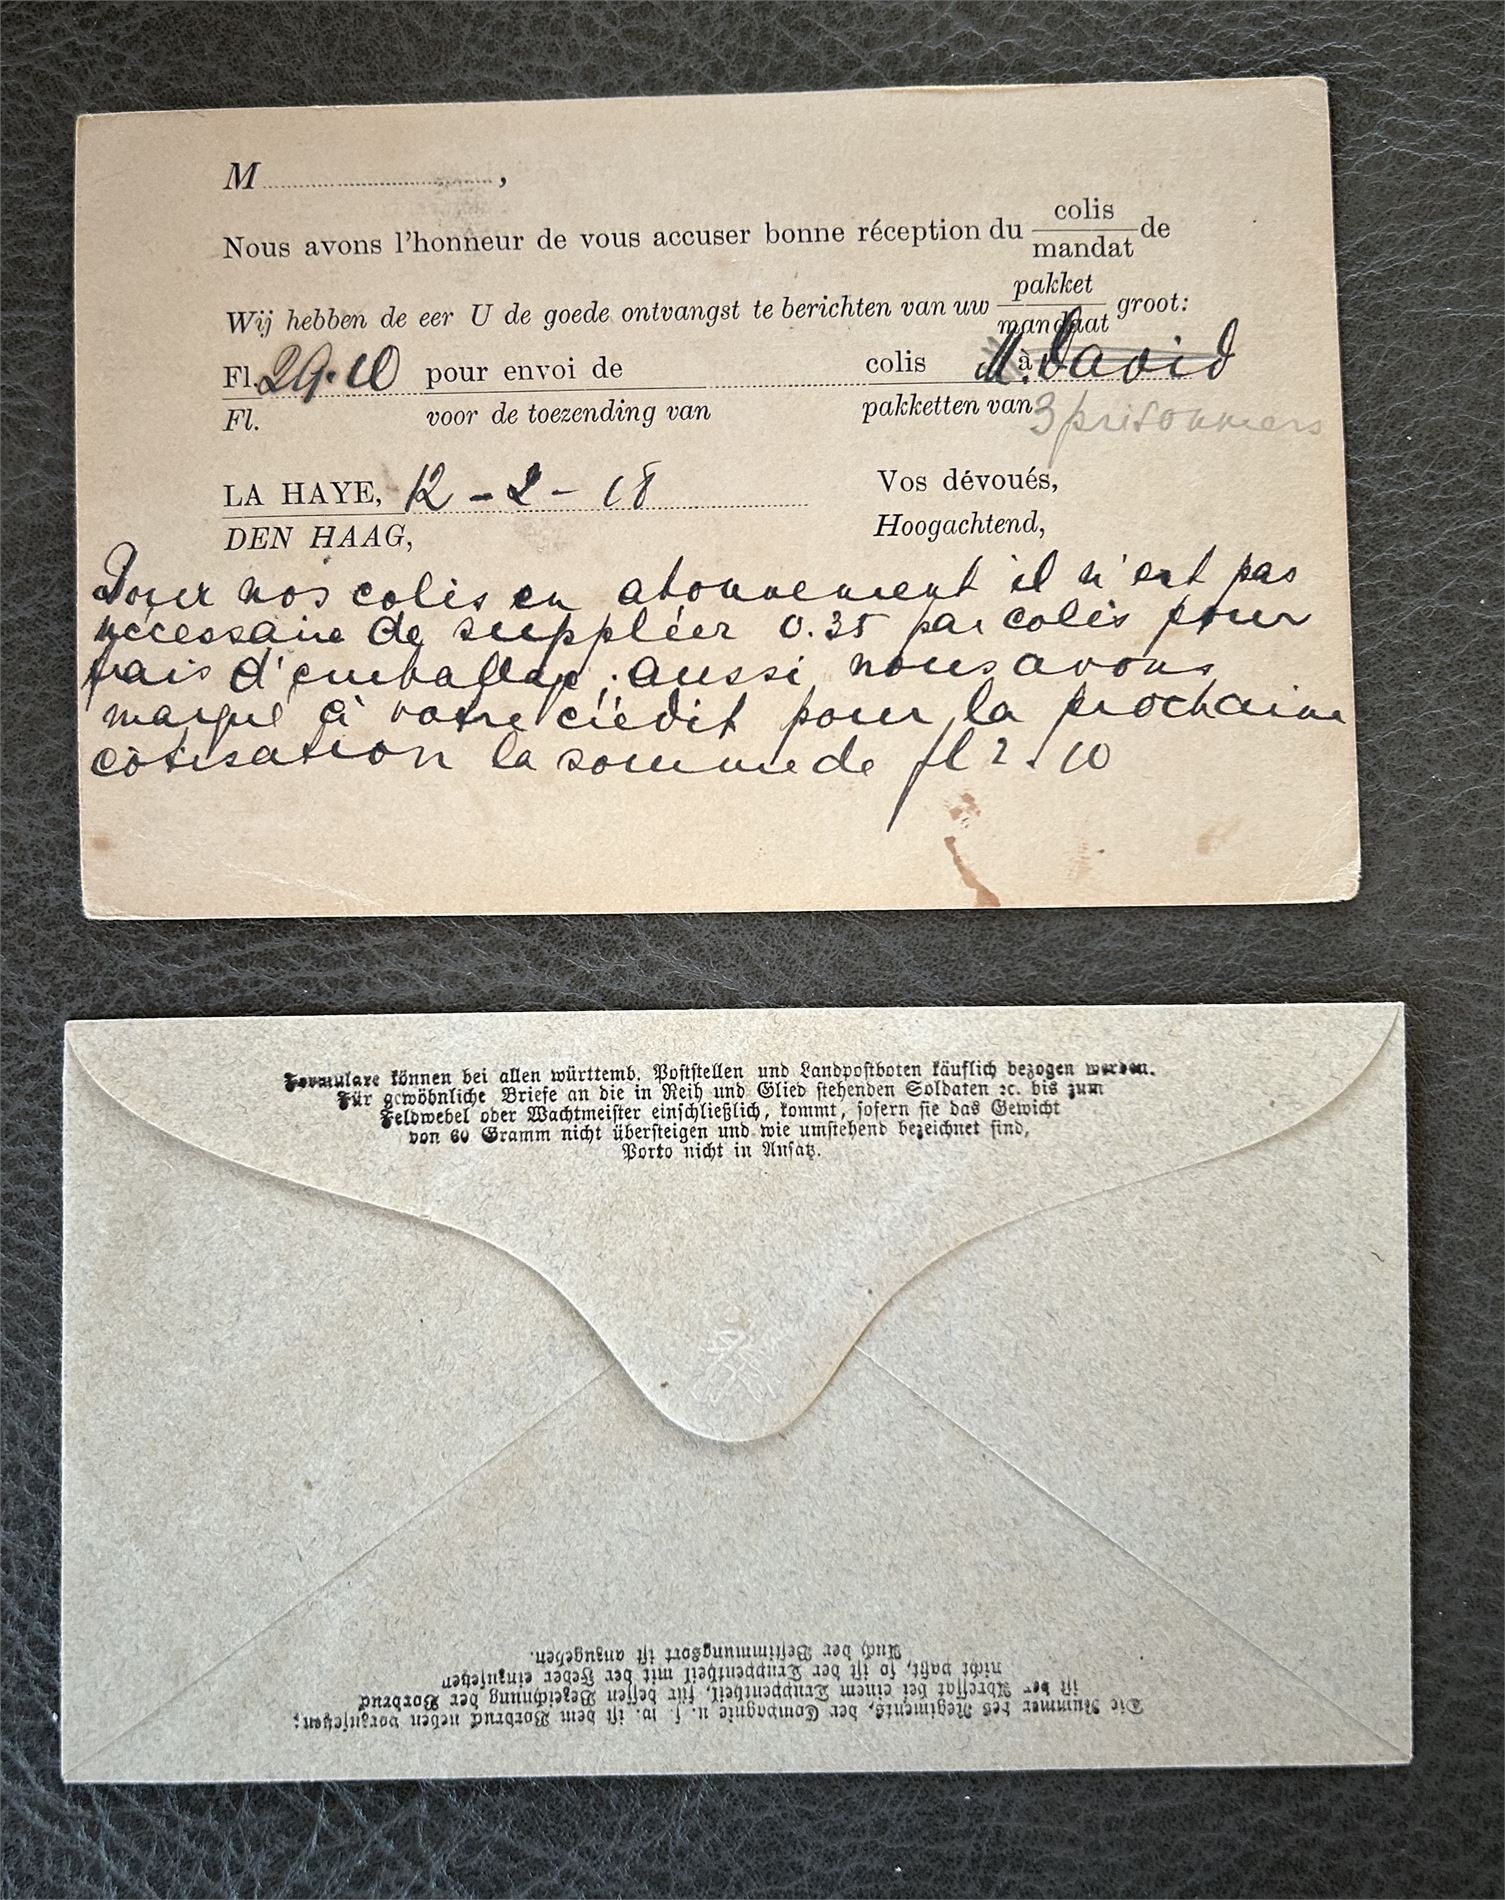 M ........................... ,
Nous avons l'honneur de vous accuser bonne réception du colis/mandat de
Wij hebben de eer U de goede ontvangst te berichten van uw pakket/mandaat groot:
Fl. 29.10 pour envoi de colis à M. David
Fl. voor de toezending van pakketten van 3 prisonniers
LA HAYE, 12 - 2 - 18 Vos dévoués,
DEN HAAG, Hoogachtend,
Pour nos colis en abonnement il n'est pas
nécessaire de suppléer 0.35 par colis pour
frais d'emballage; aussi nous avons
marqué à votre crédit pour la prochaine
cotisation la somme de fl 2.10
Formulare können bei allen württemb. Poststellen und Landpostboten käuflich bezogen werden.
Für gewöhnliche Briefe an die in Reih und Glied stehenden Soldaten ꝛc. bis zum
Feldwebel oder Wachtmeister einschließlich, kommt, sofern sie das Gewicht
von 60 Gramm nicht übersteigen und wie umstehend bezeichnet sind,
Porto nicht in Ansatz.
Die Nummer des Regiments, der Compagnie u. s. w. ist dem Vordruck neben vorzusetzen;
ist der Adressat bei einem Truppentheil, für dessen Bezeichnung der Vordruck
nicht paßt, so ist der Truppentheil mit der Feder einzusetzen
Auch der Bestimmungsort ist anzugeben.